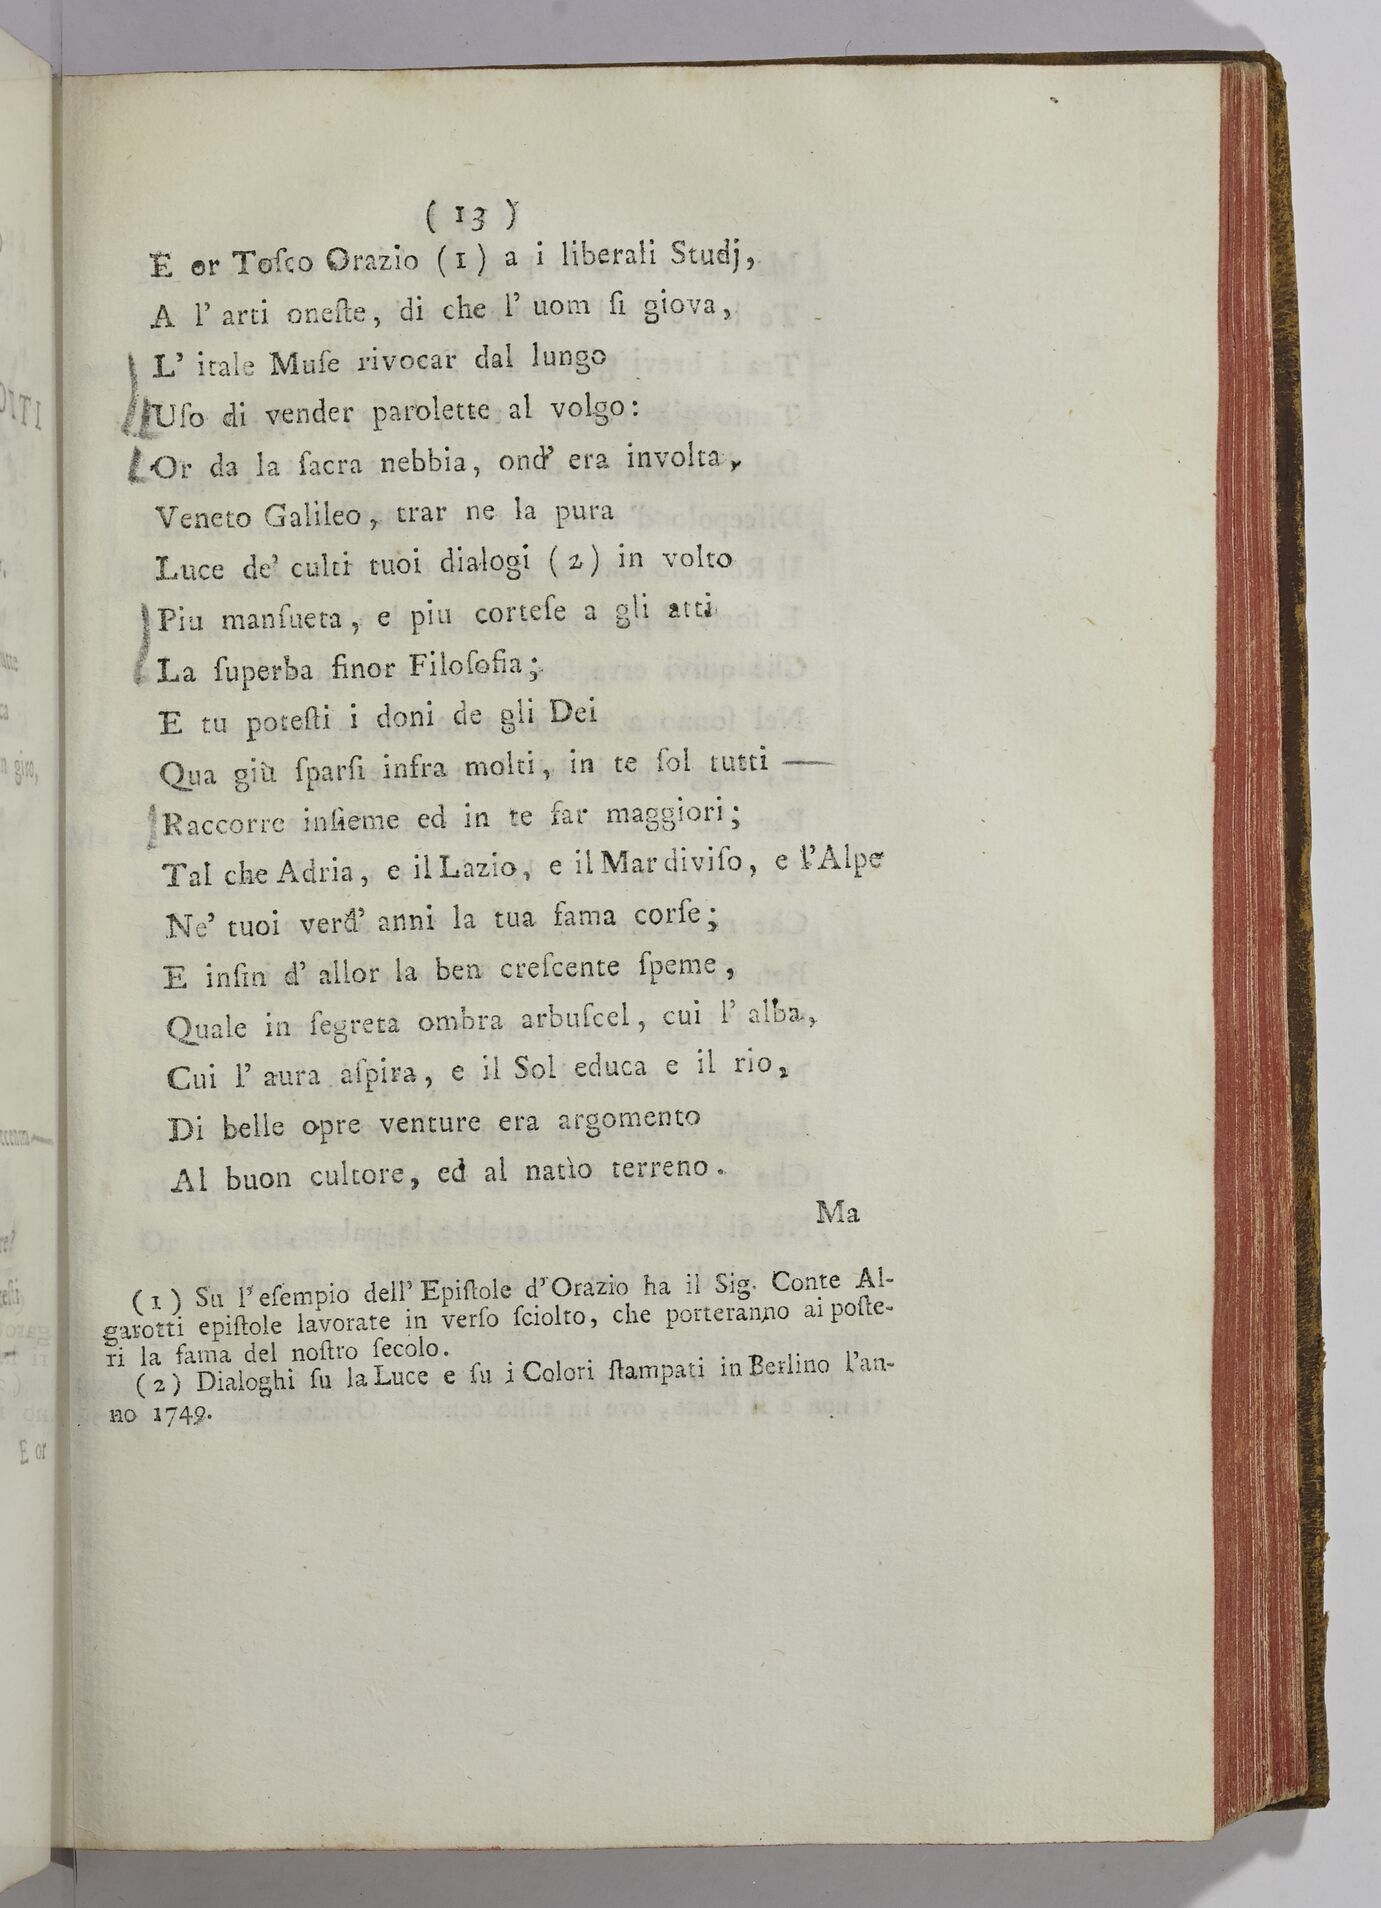 ( 13 )
E or Toſco Orazio ( 1 ) a i liberali Studj,
A l' arti oneſte, di che l' uom ſi giova,
L' itale Muſe rivocar dal lungo
Uſo di vender parolette al volgo:
Or da la ſacra nebbia, ond' era involta,
Veneto Galileo, trar ne la pura
Luce de' culti tuoi dialogi ( 2 ) in volto
Piu manſueta, e piu corteſe a gli atti
La ſuperba finor Filoſofia;
E tu poteſti i doni de gli Dei
Qua giù ſparſi infra molti, in te ſol tutti
Raccorre inſieme ed in te far maggiori;
Tal che Adria, e il Lazio, e il Mar diviſo, e l'Alpe
Ne' tuoi verd' anni la tua fama corſe;
E inſin d' allor la ben creſcente ſpeme,
Quale in ſegreta ombra arbuſcel, cui l' alba,
Cui l' aura aſpira, e il Sol educa e il rio,
Di belle opre venture era argomento
Al buon cultore, ed al natìo terreno.
Ma
( 1 ) Su l' eſempio dell' Epiſtole d' Orazio ha il Sig. Conte Al-
garotti epiſtole lavorate in verſo ſciolto, che porteranno ai poſte-
ri la fama del noſtro ſecolo.
( 2 ) Dialoghi ſu la Luce e ſu i Colori ſtampati in Berlino l'an-
no 1749.
n giro,
E or